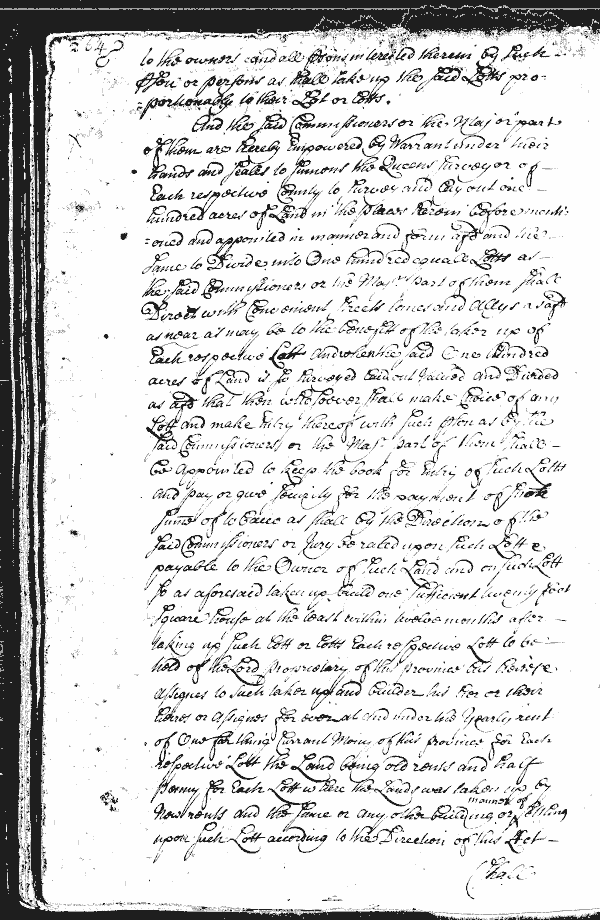 264
to the owners and all psons interested therein by such
pson or persons as shall take up the said Lotts pro-
=portionably to their Lot or Lotts.
And the said Commissioners or the Major part
of them are hereby Empowered by Warrant under their
hands and seales to sumons the Queens surveyor of
Each respective County to survey and lay out one
hundred acres of Land in the places herein before menti-
=oned and appointed in manner and form afd and the
same to Divide into One hundred equall Lotts as
the said Commissioners or the Majr part of them shall
Direct with Convenient streets lanes and Alleys afd
as near as may be to the benefitt of the taker up of
Each respective Lott And when the said One hundred
acres of Land is so surveyed laid out valued and Divided
as afd that then whosoever shall make Choice of any
Lott and make Entry thereof with such pson as by the
said Commissioners or the Majr part of them shall
be appointed to keep the book for Entry of such Lotts
and pay or give security for the payment of such
sume of tobacco as shall by the Direction of the
said Commissioners or Jury be rated upon such Lott
payable to the Owner of such Land and on such Lott
so as aforesaid taken up build one sufficient twenty foot
square house at the least within twelve months after
taking up such Lott or Lotts Each respective Lott to be
held of the Lord proprietary of this province his heires
assignes to such taker up and builder his heires or their
heires or assignes for ever at and under the Yearly rent
of One farthing Currant Money of this province for Each
respective Lott the Land being old rents and half
penny for Each Lott where the Lands was taken up by
New rents and the same or any other building or manner of setling
upon such Lott according to the Direction of this Act
shall